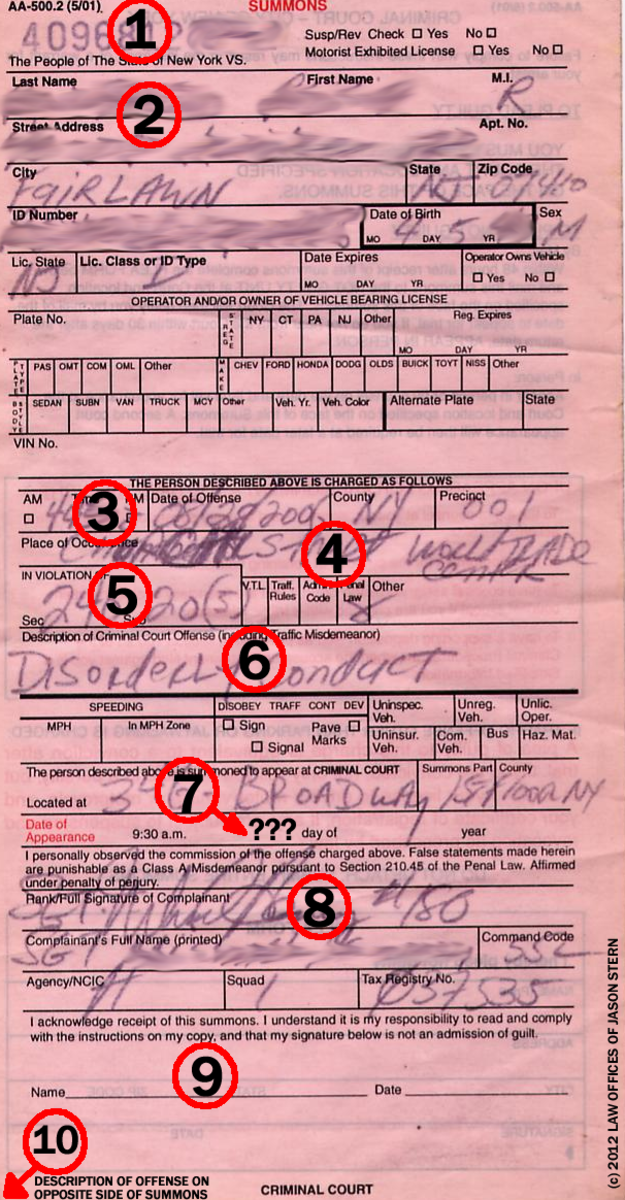 AA-500.2 (5/01) SUMMONS
1
Susp/Rev Check Yes No
Motorist Exhibited License Yes No
The People of The State of New York VS.
Last Name First Name M.I.
R
2
Street Address Apt. No.
City State Zip Code
FAIR LAWN NJ
ID Number Date of Birth Sex
MO 4 DAY 5 YR M
Lic. State Lic. Class or ID Type Date Expires Operator Owns Vehicle
NJ MO DAY YR Yes No
OPERATOR AND/OR OWNER OF VEHICLE BEARING LICENSE
Plate No. STATE REG NY CT PA NJ Other Reg. Expires
MO DAY YR
PLATE TYPE PAS OMT COM OML Other MAKE CHEV FORD HONDA DODG OLDS BUICK TOYT NISS Other
BODY STYLE SEDAN SUBN VAN TRUCK MCY Other Veh. Yr. Veh. Color Alternate Plate State
VIN No.
THE PERSON DESCRIBED ABOVE IS CHARGED AS FOLLOWS
AM Time PM Date of Offense County Precinct
3 NY 001
Place of Occurrence 4 WORLD TRADE
CENTER
IN VIOLATION OF V.T.L. Traff. Rules Admin Code Penal Law Other
5 20(5)
Sec Sub
Description of Criminal Court Offense (including Traffic Misdemeanor)
6
DISORDERLY CONDUCT
SPEEDING DISOBEY TRAFF CONT DEV Uninspec. Veh. Unreg. Veh. Unlic. Oper.
MPH In MPH Zone Sign Pave Marks Signal Uninsur. Veh. Com. Veh. Bus Haz. Mat.
The person described above is summoned to appear at CRIMINAL COURT Summons Part County
Located at 346 BROADWAY NY
7
Date of Appearance 9:30 a.m. ??? day of year
I personally observed the commission of the offense charged above. False statements made herein
are punishable as a Class A Misdemeanor pursuant to Section 210.45 of the Penal Law. Affirmed
under penalty of perjury.
Rank/Full Signature of Complainant
SGT. 8 #180
Complainant's Full Name (printed) Command Code
SGT
Agency/NCIC Squad Tax Registry No.
1
I acknowledge receipt of this summons. I understand it is my responsibility to read and comply
with the instructions on my copy, and that my signature below is not an admission of guilt.
9
Name Date
10
DESCRIPTION OF OFFENSE ON
OPPOSITE SIDE OF SUMMONS
CRIMINAL COURT
(c) 2012 LAW OFFICES OF JASON STERN